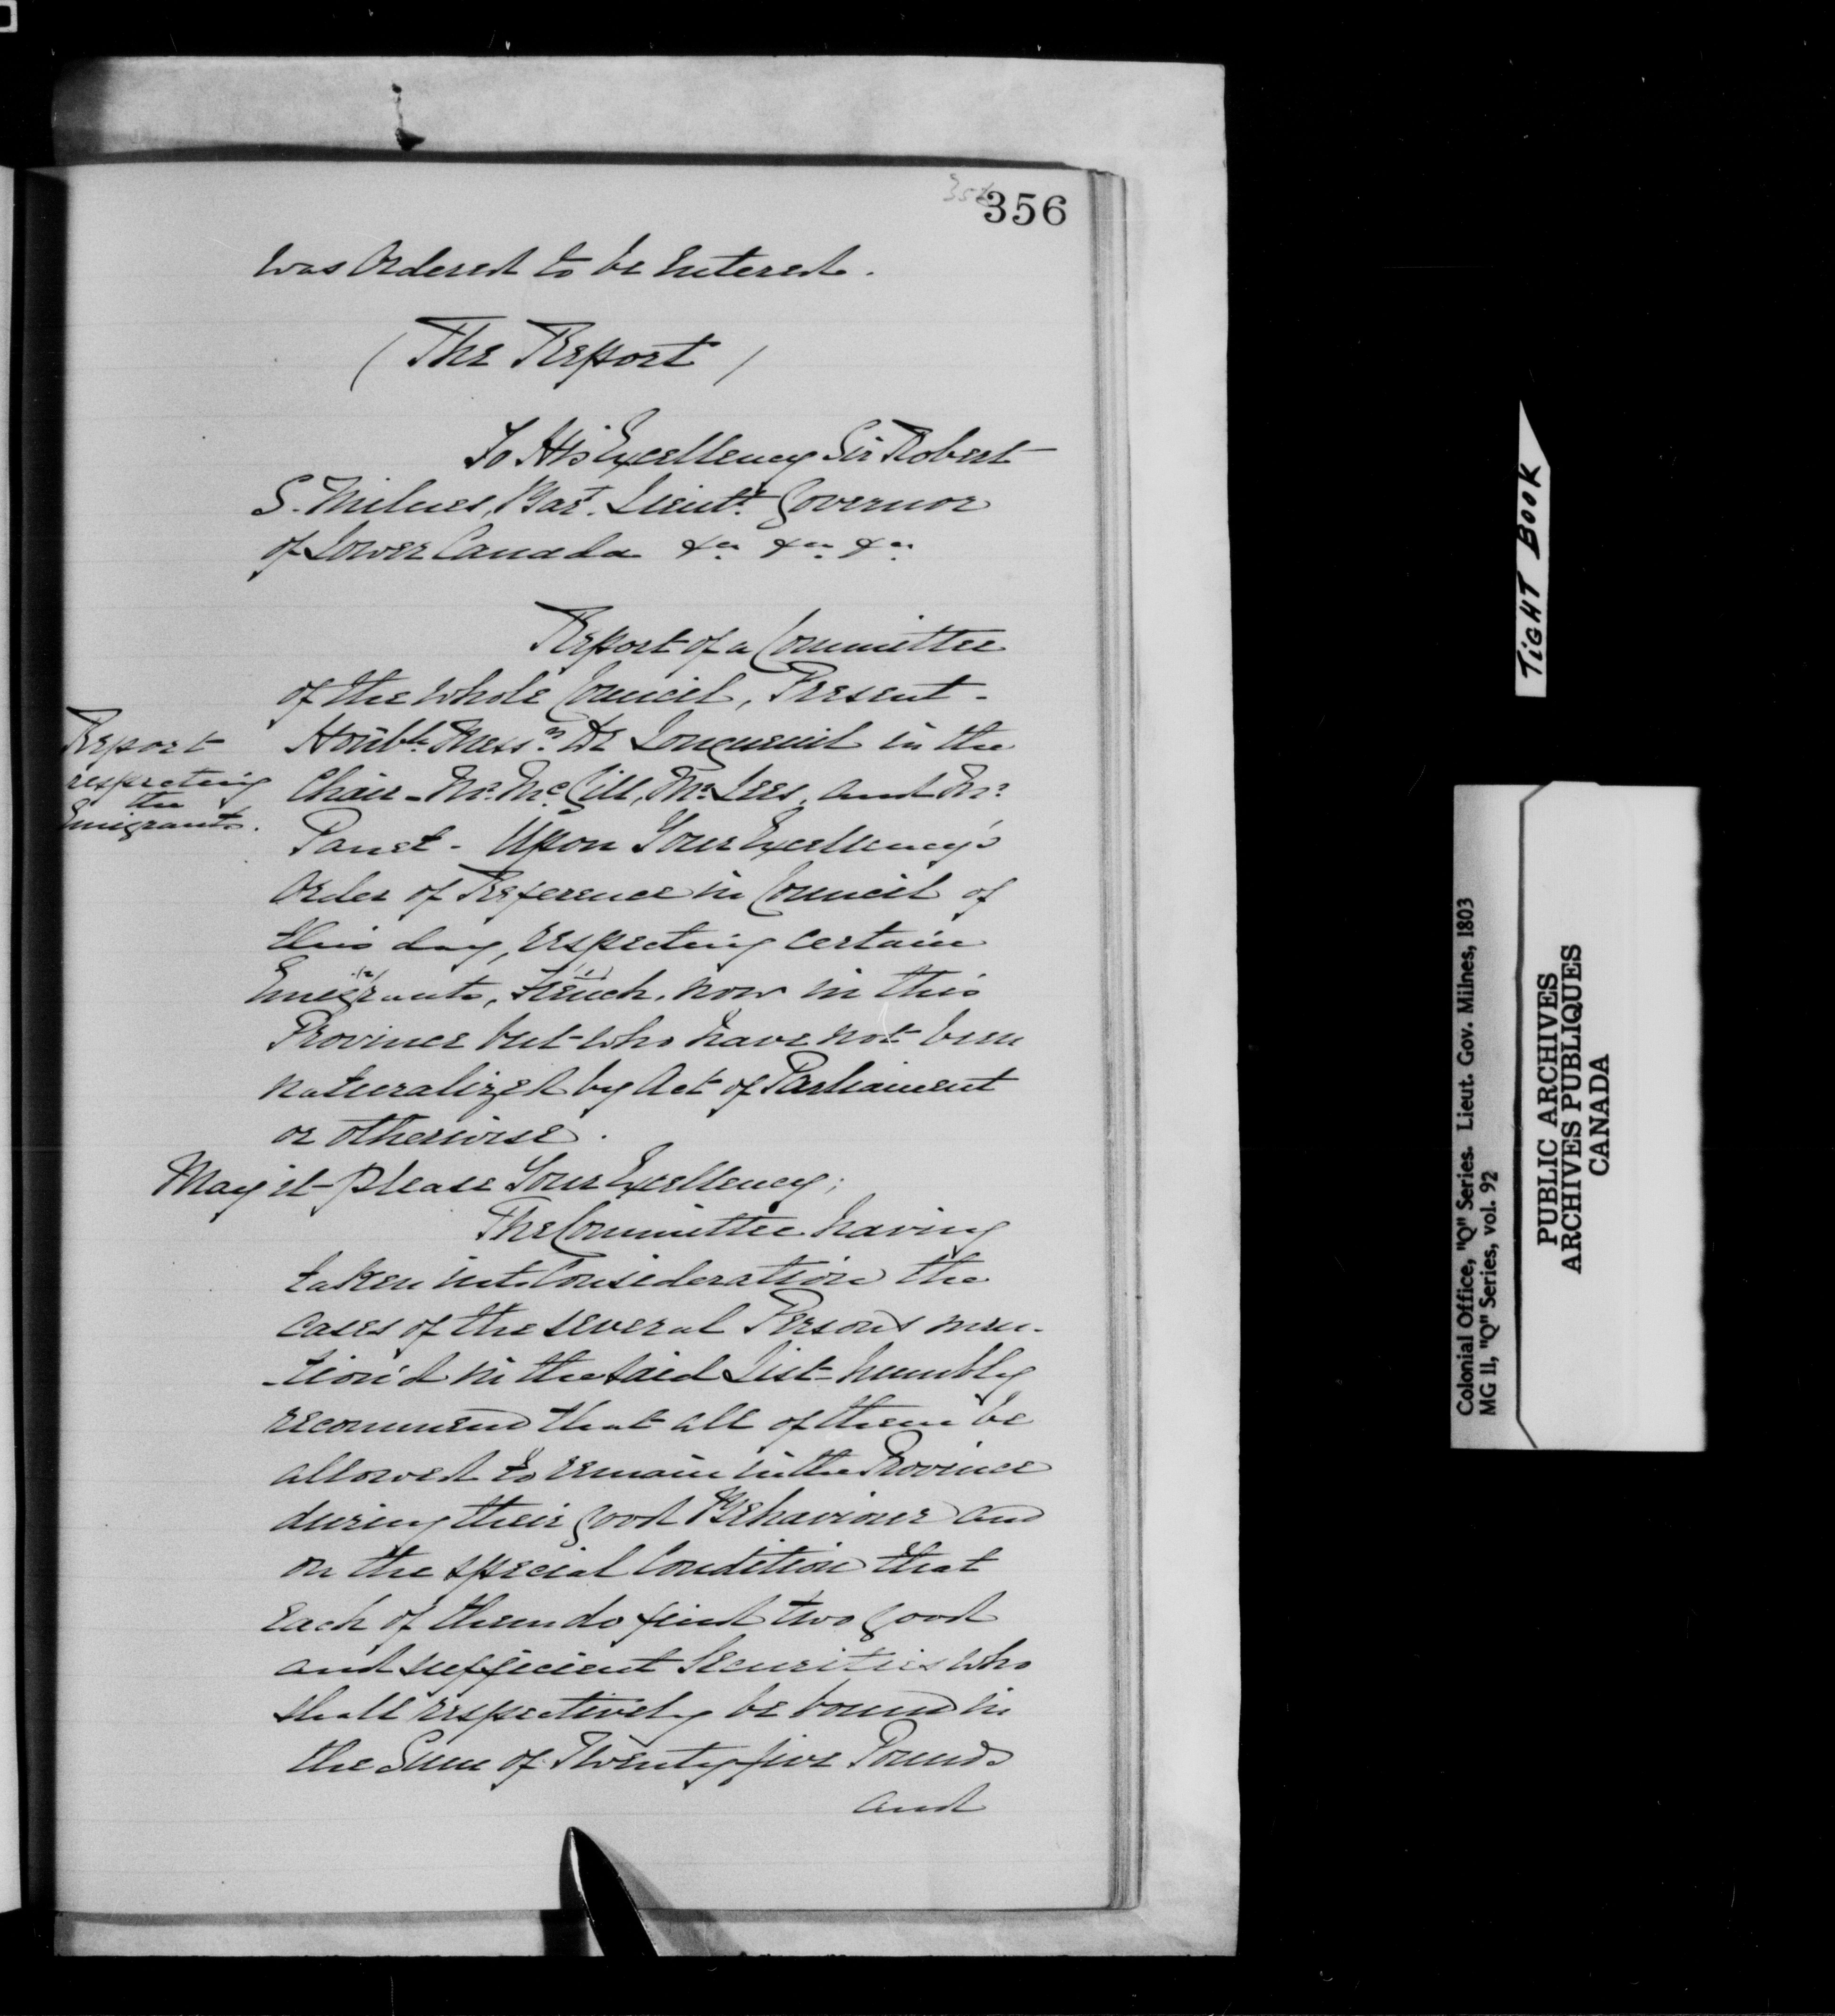 356
was Ordered to be Entered.
(The Report)
To His Excellency Sir Robert
S. Milnes, Bart. Lieutt. Governor
of Lower Canada &ca. &ca. &ca.
Report of a Committee
of the whole Council, Present -
Honble. Messrs. De Longueuil in the
Chair - Mr. McGill, Mr. Lees, and Mr.
Panet - Upon Your Excellency's
Order of Reference in Council of
this day, respecting certain
Emigrants, French, now in this
Province but who have not been
naturalized by Act of Parliament
or otherwise.
Report
respecting
the
Emigrants.
May it please Your Excellency;
The Committee having
taken into Consideration the
cases of the several Persons men-
-tion'd in the said List humbly
recommend that all of them be
allowed to remain in the Province
during their good Behaviour and
on the special Condition that
each of them do find two good
and sufficient Securities who
shall respectively be bound in
the Sum of Twenty five Pounds
and
TIGHT BOOK
Colonial Office, "Q" Series. Lieut. Gov. Milnes, 1803
MG 11, "Q" Series, vol. 92
PUBLIC ARCHIVES
ARCHIVES PUBLIQUES
CANADA